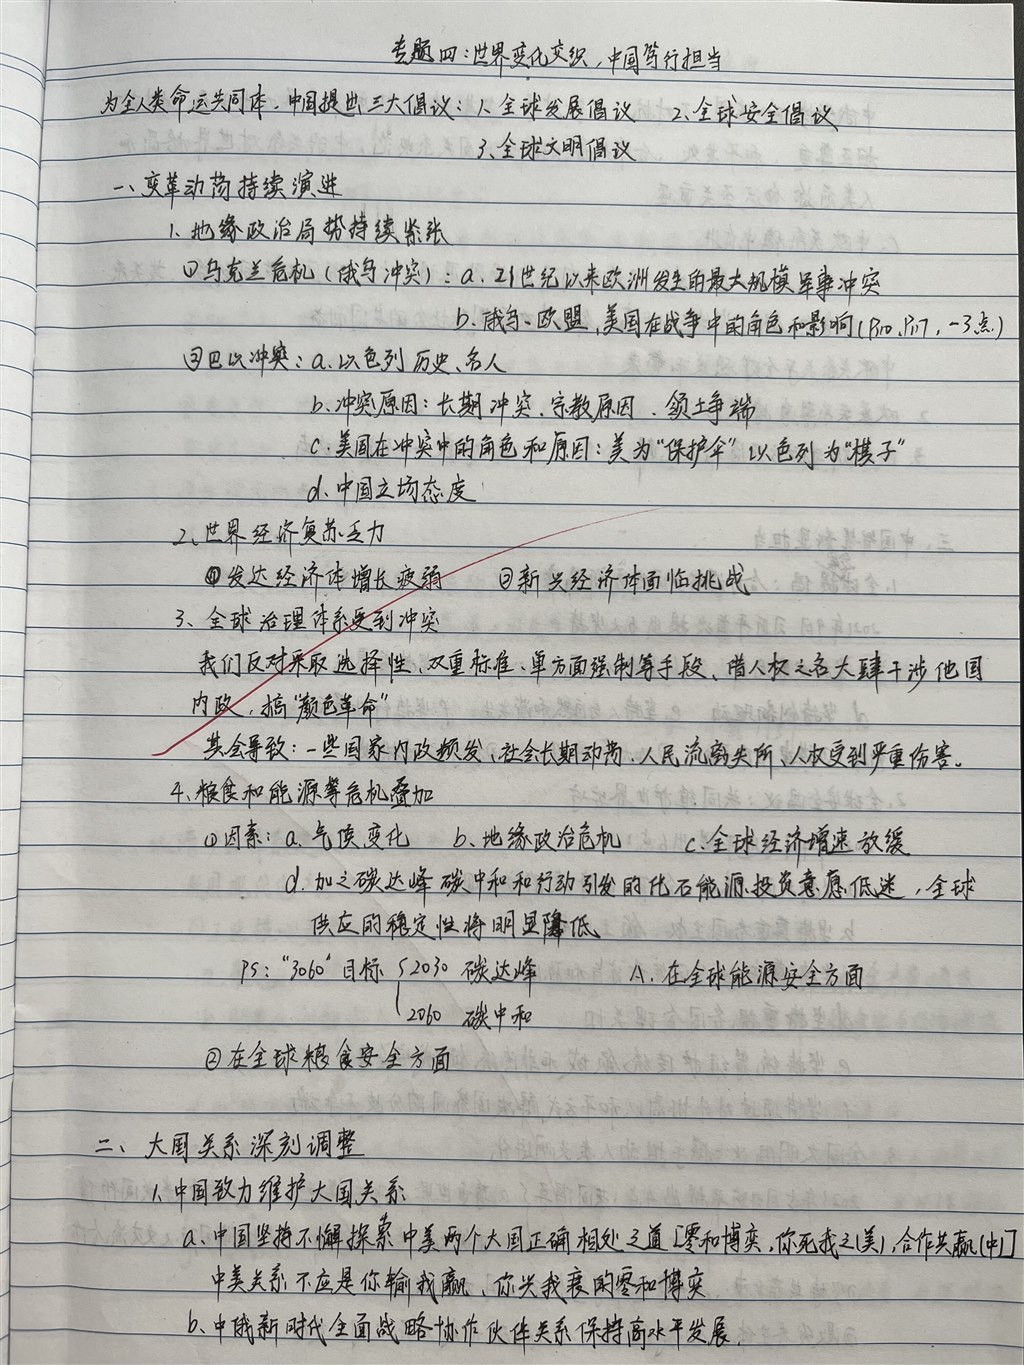 专题四：世界变化交织，中国笃行担当
为全人类命运共同体，中国提出三大倡议：1.全球发展倡议 2.全球安全倡议
3.全球文明倡议
一、变革动荡持续演进
1.地缘政治局势持续紧张
①乌克兰危机（俄乌冲突）：a.21世纪以来欧洲发生的最大规模军事冲突
b.俄乌、欧盟、美国在战争中的角色和影响（P10、P17，-3点）
②巴以冲突：a.以色列历史、名人
b.冲突原因：长期冲突、宗教原因、领土争端
c.美国在冲突中的角色和原因：美为“保护伞” 以色列为“棋子”
d.中国立场态度
2、世界经济复苏乏力
①发达经济体增长疲弱 ②新兴经济体面临挑战
3、全球治理体系受到冲突
我们反对采取选择性、双重标准、单方面强制等手段、借人权之名大肆干涉他国
内政，搞“颜色革命”
其会导致：一些国家内政频发、社会长期动荡、人民流离失所、人权受到严重伤害。
4.粮食和能源等危机叠加
①因素：a.气候变化 b.地缘政治危机 c.全球经济增速放缓
d.加之碳达峰碳中和和行动引发的化石能源投资意愿低迷，全球
供应的稳定性将明显降低
PS：“3060”目标 2030 碳达峰 A.在全球能源安全方面
2060 碳中和
②在全球粮食安全方面
二、大国关系深刻调整
1.中国致力维护大国关系
a.中国坚持不懈探索中美两个大国正确相处之道[零和博奕，你死我之(美)，合作共赢(中)]
中美关系不应是你输我赢、你兴我衰的零和博奕
b.中俄新时代全面战略协作伙伴关系保持高水平发展.